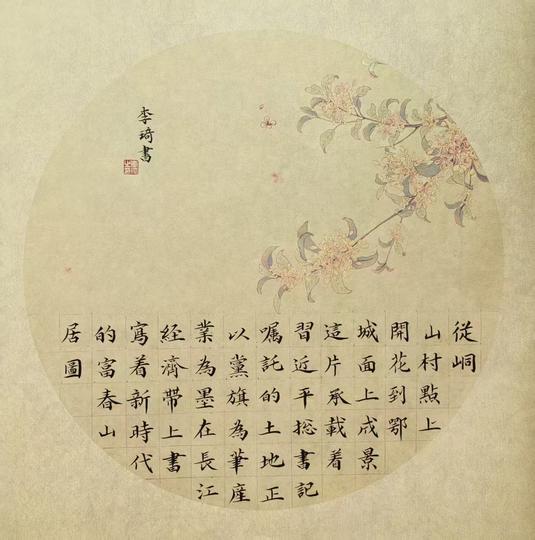 從峒
山村點上
開花到鄂
城面上成景
這片承載着
習近平総書記
嘱託的土地正
以黨旗為筆產
業為墨在長江
經濟帶上書
寫着新時代
的富春山
居圖
李琦書